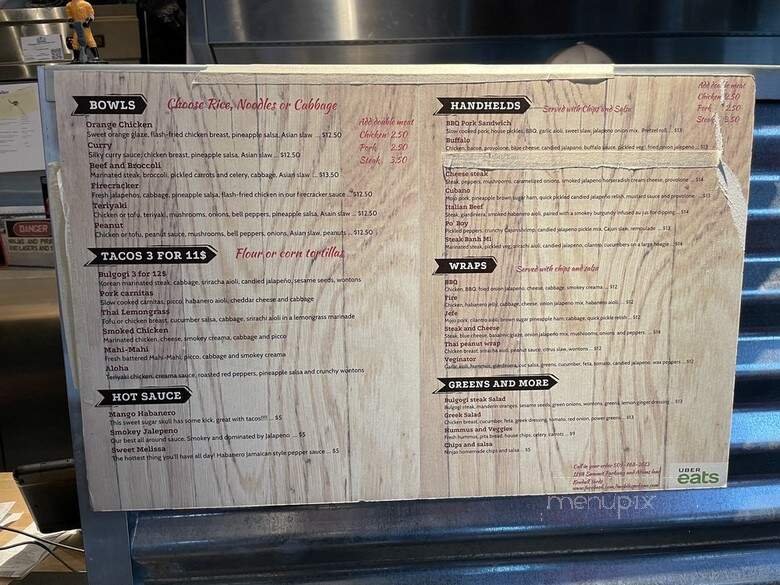 BOWLS
Choose Rice, Noodles or Cabbage
Add double meat
Chicken 2.50
Pork 2.50
Steak 3.50
Orange Chicken
Sweet orange glaze, flash-fried chicken breast, pineapple salsa, Asian slaw ... $12.50
Curry
Silky curry sauce, chicken breast, pineapple salsa, Asian slaw ... $12.50
Beef and Broccoli
Marinated steak, broccoli, pickled carrots and celery, cabbage, Asian slaw ... $13.50
Firecracker
Fresh jalapeños, cabbage, pineapple salsa, flash-fried chicken in our firecracker sauce ... $12.50
Teriyaki
Chicken or tofu, teriyaki, mushrooms, onions, bell peppers, pineapple salsa, Asain slaw ... $12.50
Peanut
Chicken or tofu, peanut sauce, mushrooms, bell peppers, onions, Asian slaw, peanuts ... $12.50
TACOS 3 FOR 11$
Flour or corn tortillas
Bulgogi 3 for 12$
Korean marinated steak, cabbage, sriracha aioli, candied jalapeño, sesame seeds, wontons
Pork carnitas
Slow cooked carnitas, picco, habanero aioli, cheddar cheese and cabbage
Thai Lemongrass
Tofu or chicken breast, cucumber salsa, cabbage, srirachi aioli in a lemongrass marinade
Smoked Chicken
Marinated chicken, cheese, smokey creama, cabbage and picco
Mahi-Mahi
Fresh battered Mahi-Mahi, picco, cabbage and smokey creama
Aloha
Teriyaki chicken, creama sauce, roasted red peppers, pineapple salsa and crunchy wontons
HOT SAUCE
Mango Habanero
This sweet sugar skull has some kick, great with tacos!!!! ... $5
Smokey Jalepeno
Our best all around sauce. Smokey and dominated by Jalapeno ... $5
Sweet Melissa
The hottest thing you'll have all day! Habanero Jamaican style pepper sauce ... $5
HANDHELDS
Served with Chips and Salsa
Add double meat
Chicken 2.50
Pork 2.50
Steak 3.50
BBQ Pork Sandwich
Slow cooked pork, house pickles, BBQ, garlic aioli, sweet slaw, jalapeno onion mix. Pretzel roll ... $13
Buffalo
Chicken, bacon, provolone, blue cheese, candied jalapeno, buffalo sauce, pickled veg, fried onion jalapeno ... $13
Cheese steak
Steak, peppers, mushrooms, caramelized onions, smoked jalapeno horseradish cream cheese, provolone ... $14
Cubano
Mojo pork, pineapple brown sugar ham, quick pickled candied jalapeño relish, mustard sauce and provolone ... $13
Italian Beef
Steak, giardiniera, smoked habanero aioli, paired with a smokey burgundy infused au jus for dipping ... $14
Po' Boy
Pickled peppers, crunchy Cajun shrimp, candied jalapeno pickle mix, Cajun slaw, remoulade ... $13
Steak Banh Mi
Marinated steak, pickled veg, srirachi aioli, candied jalapeno, cilantro, cucumbers on a large hoagie ... $14
WRAPS
Served with chips and salsa
BBQ
Chicken, BBQ, fried onion jalapeno, cheese, cabbage, smokey creama ... $12
Fire
Chicken, habanero jelly, cabbage, cheese, onion jalapeno mix, habanero aioli ... $12
Jefe
Mojo pork, cilantro aioli, brown sugar pineapple ham, cabbage, quick pickle relish ... $12
Steak and Cheese
Steak, blue cheese, balsamic glaze, onion jalapeño mix, mushrooms, onions, and peppers ... $14
Thai peanut wrap
Chicken breast, sriracha aioli, peanut sauce, citrus slaw, wontons ... $12
Veginator
Garlic aioli, hummus, giardiniera, cuc salsa, greens, cucumber, feta, tomato, candied jalapeno, wax peppers ... $12
GREENS AND MORE
Bulgogi steak Salad
Bulgogi steak, mandarin oranges, sesame seeds, green onions, wontons, greens, lemon ginger dressing ... $13
Greek Salad
Chicken breast, cucumber, feta, greek dressing, tomato, red onion, power greens ... $13
Hummus and Veggies
Fresh hummus, pita bread, house chips, celery, carrots ... $9
Chips and salsa
Ninjas homemade chips and salsa ... $5
UBER
eats
DANGER
menupix